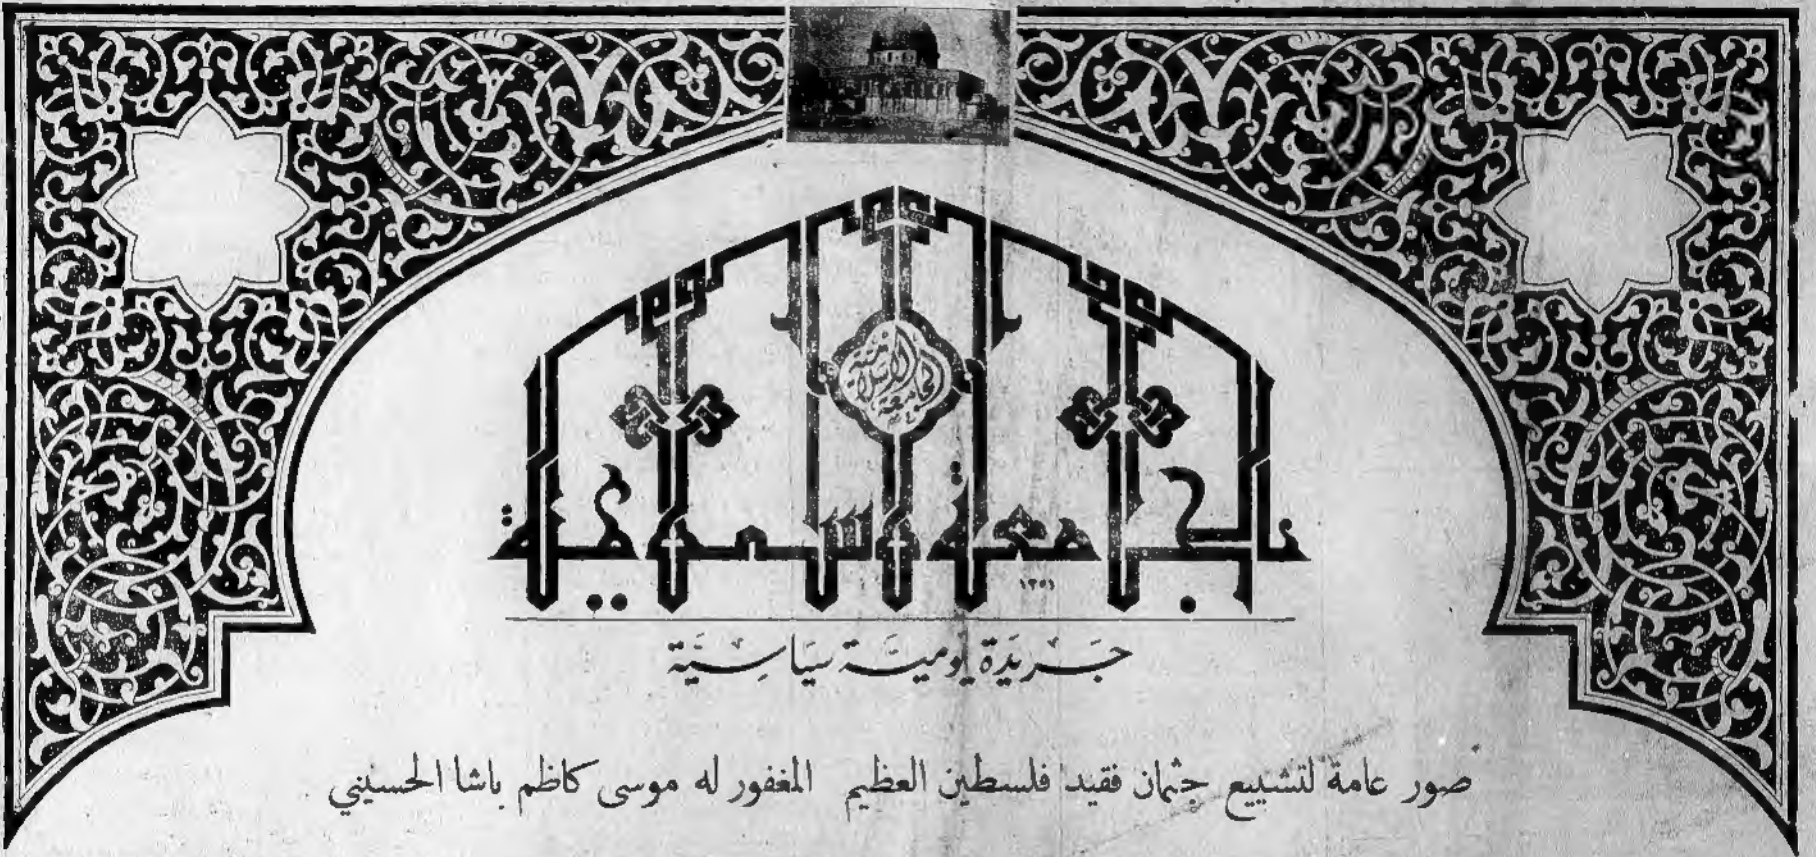 الجامعة الإسلامية
الجامعة الاسلامية
١٣٥١
جريدة يومية سياسية
صور عامة لتشييع جثمان فقيد فلسطين العظيم المغفور له موسى كاظم باشا الحسيني